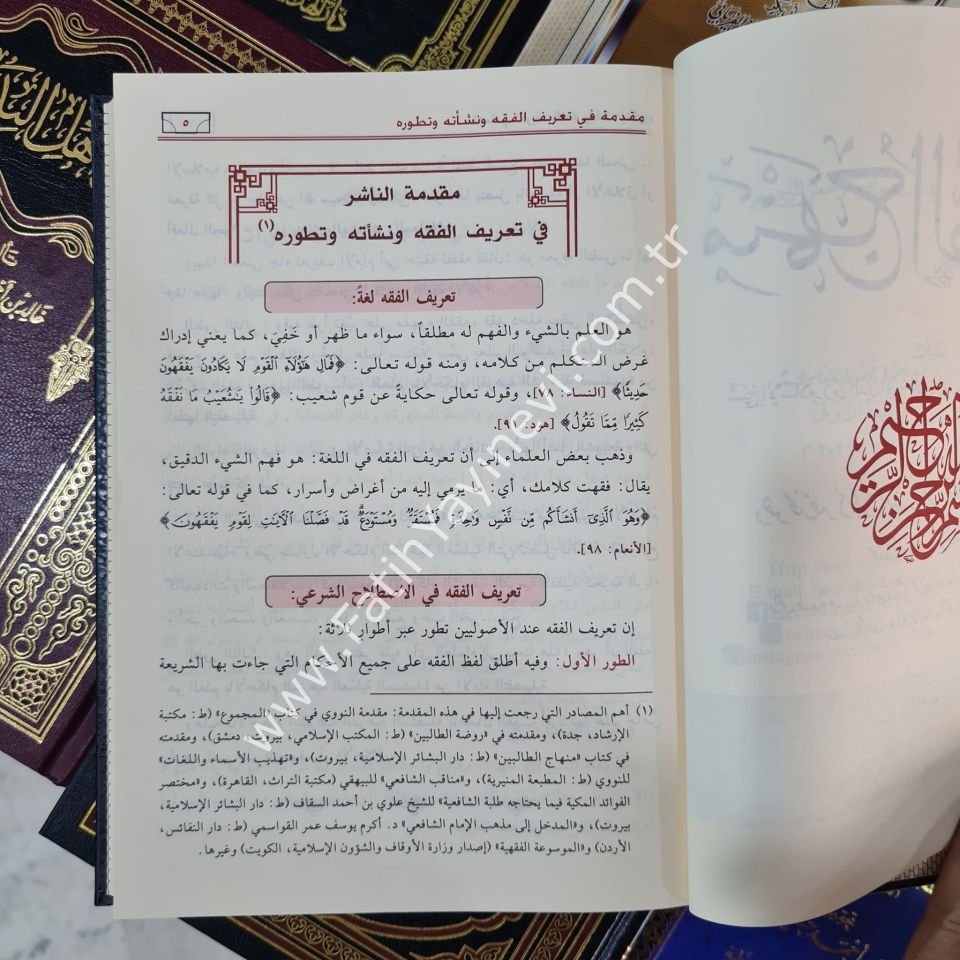 مقدمة في تعريف الفقه ونشأته وتطوره
٥
مقدمة الناشر
في تعريف الفقه ونشأته وتطوره (١)
تعريف الفقه لغةً:
هو العلم بالشيء والفهم له مطلقاً، سواء ما ظهر أو خَفِيَ، كما يعني إدراك
غرض المتكلم من كلامه، ومنه قوله تعالى: ﴿فَمَالِ هَٰٓؤُلَآءِ ٱلْقَوْمِ لَا يَكَادُونَ يَفْقَهُونَ
حَدِيثًا﴾ [النساء: ٧٨]، وقوله تعالى حكاية عن قوم شعيب: ﴿قَالُوا۟ يَٰشُعَيْبُ مَا نَفْقَهُ
كَثِيرًا مِّمَّا تَقُولُ﴾ [هود: ٩١].
وذهب بعض العلماء إلى أن تعريف الفقه في اللغة: هو فهم الشيء الدقيق،
يقال: فقهت كلامك، أي: ما يرمي إليه من أغراض وأسرار، كما في قوله تعالى:
﴿وَهُوَ ٱلَّذِىٓ أَنشَأَكُم مِّن نَّفْسٍ وَٰحِدَةٍ فَمُسْتَقَرٌّ وَمُسْتَوْدَعٌ قَدْ فَصَّلْنَا ٱلْءَايَٰتِ لِقَوْمٍ يَفْقَهُونَ﴾
[الأنعام: ٩٨].
تعريف الفقه في الاصطلاح الشرعي:
إن تعريف الفقه عند الأصوليين تطور عبر أطوار ثلاثة:
الطور الأول: وفيه أطلق لفظ الفقه على جميع الأحكام التي جاءت بها الشريعة
(١) أهم المصادر التي رجعت إليها في هذه المقدمة: مقدمة النووي في كتاب «المجموع» (ط: مكتبة
الإرشاد، جدة)، ومقدمته في «روضة الطالبين» (ط: المكتب الإسلامي، بيروت، دمشق)، ومقدمته
في كتاب «منهاج الطالبين» (ط: دار البشائر الإسلامية، بيروت)، و«تهذيب الأسماء واللغات»
للنووي (ط: المطبعة المنيرية)، و«مناقب الشافعي» للبيهقي (مكتبة التراث، القاهرة)، و«مختصر
الفوائد المكية فيما يحتاجه طلبة الشافعية» للشيخ علوي بن أحمد السقاف (ط: دار البشائر الإسلامية،
بيروت)، و«المدخل إلى مذهب الإمام الشافعي» د. أكرم يوسف عمر القواسمي (ط: دار النفائس،
الأردن) و«الموسوعة الفقهية» (إصدار وزارة الأوقاف والشؤون الإسلامية، الكويت) وغيرها.
www.FatihYayinevi.com.tr